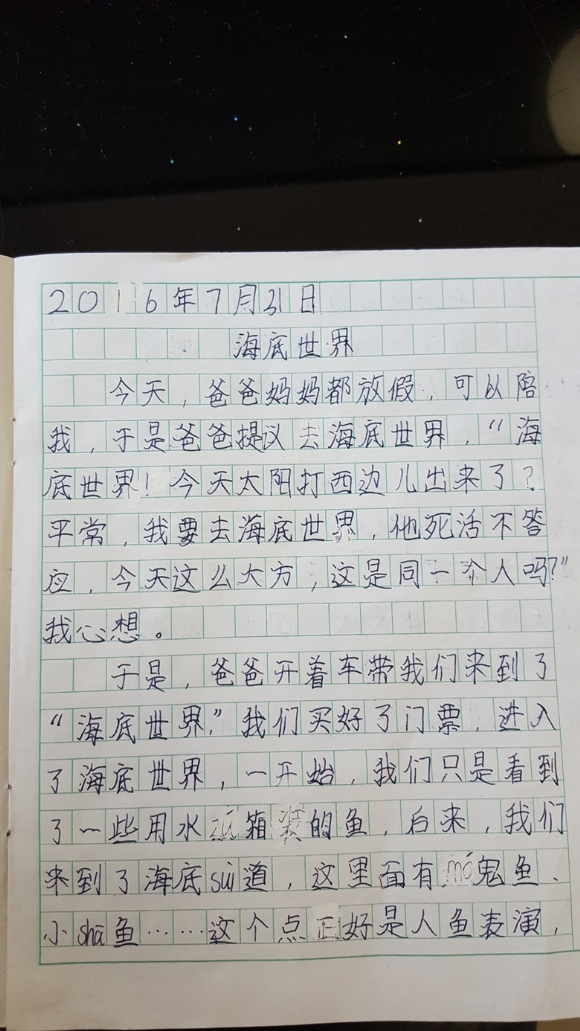 2016年7月31日
海底世界
今天，爸爸妈妈都放假，可以陪
我，于是爸爸提议去海底世界，“海
底世界！今天太阳打西边儿出来了？
平常，我要去海底世界，他死活不答
应，今天这么大方，这是同一个人吗？”
我心想。
于是，爸爸开着车带我们来到了
“海底世界。”我们买好了门票，进入
了海底世界，一开始，我们只是看到
了一些用水箱装的鱼，后来，我们
来到了海底suì道，这里面有mó鬼鱼、
小shā鱼……这个点正好是人鱼表演，